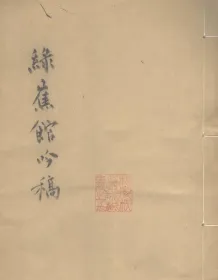 綠蕉館吟稿